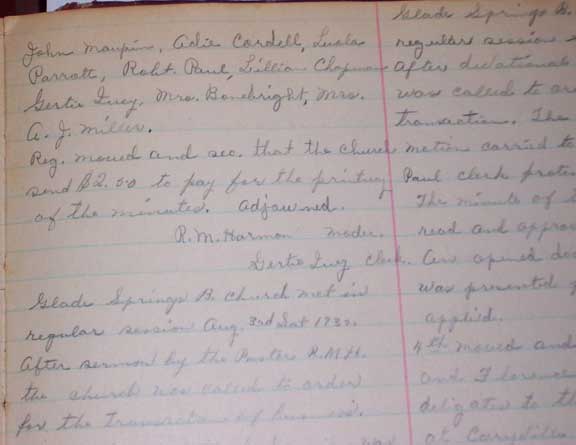 John Maupin, Adie Cordell, Luola
Parrott, Robt. Paul, Lillian Chapman
Gertie Ivey, Mrs. Bonebright, Mrs.
A. J. Miller.
Reg. moved and sec. that the church
send $2.50 to pay for the printing
of the minutes. Adjourned.
R. M. Harmon Moder.
Gertie Ivey Clerk.
Glade Springs B. church met in
regular session Aug. 3rd Sat
After sermon by the Pastor R.M.H.
the church was called to order
for the transaction of business.
Glade Springs B.
regular session
After devotional
was called to
transaction. The
motion carried to
Paul clerk
The minute of
read and
An opened
was presented
applied.
4th moved and
and Florence
deligates to
at